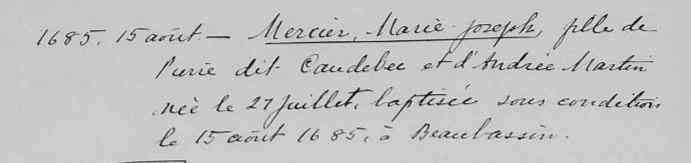 1685. 15 août — Mercier, Marie-Joseph, fille de
Pierre dit Caudebec et d'Andrée Martin
née le 27 juillet, baptisée sous condition
le 15 août 1685, à Beaubassin.